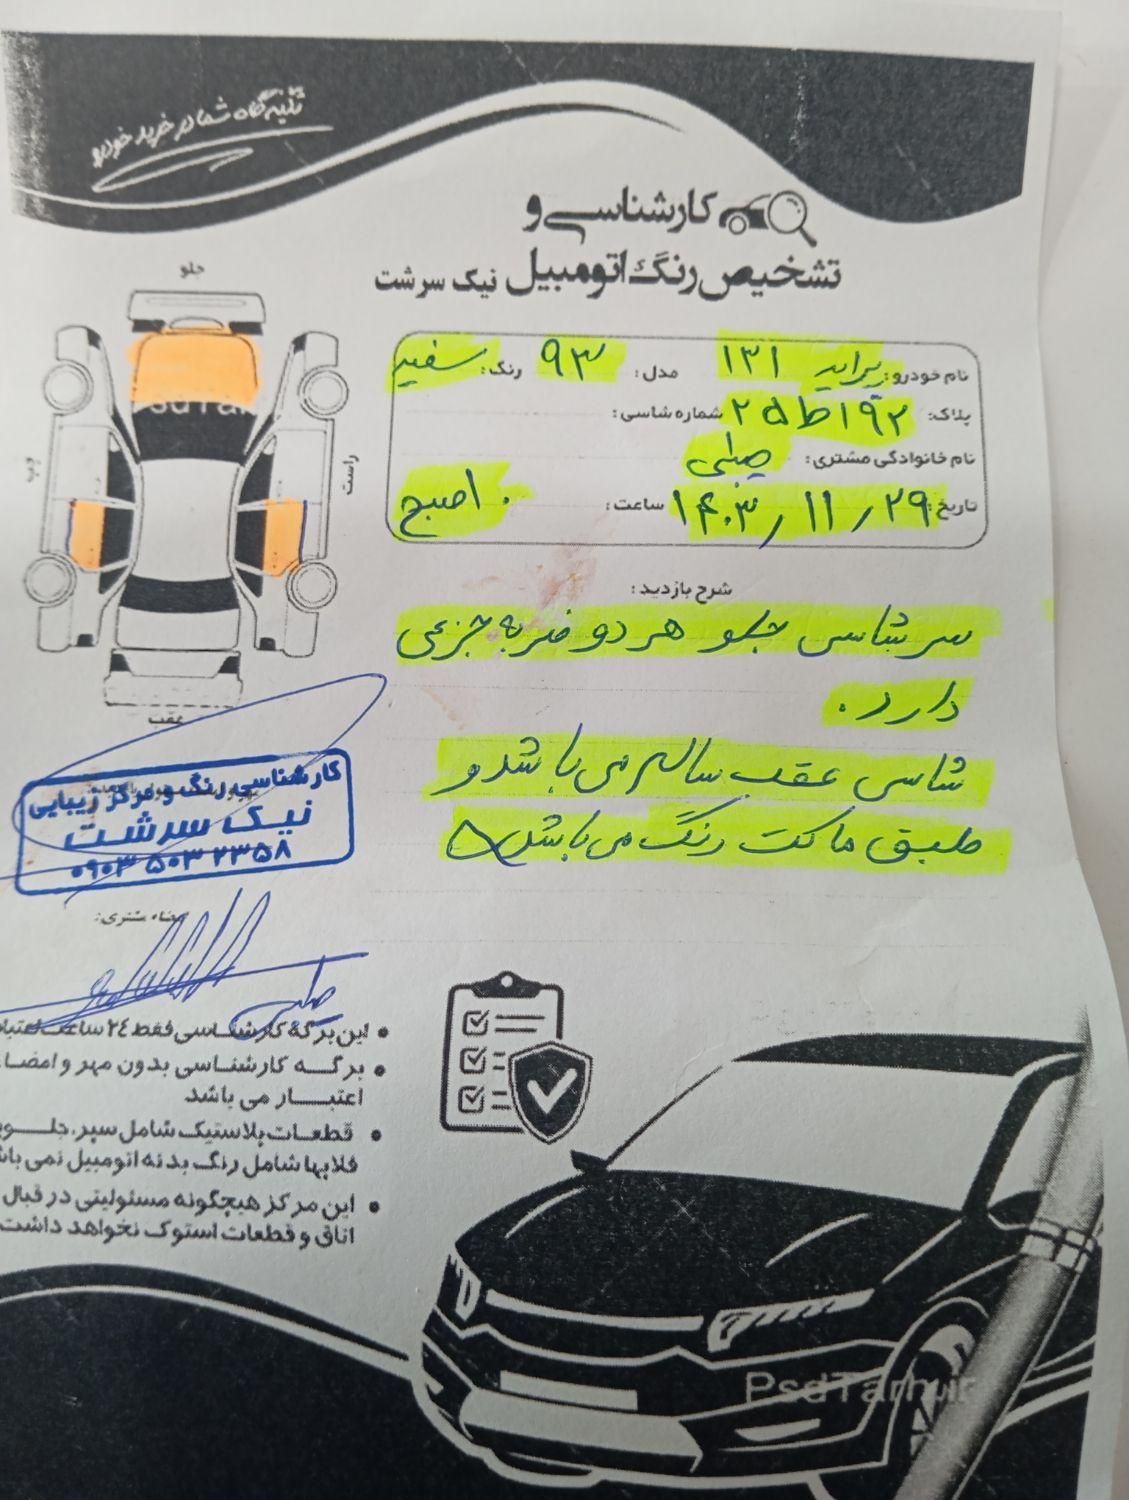 تکیه گاه شما در خرید خودرو
کارشناسی و
تشخیص رنگ اتومبیل نیک سرشت
جلو
چپ
راست
عقب
PsdTar
نام خودرو: پراید ۱۳۱ مدل: ۹۳ رنگ: سفید
پلاک: ۱۹۲ ط ۲۵ شماره شاسی:
نام خانوادگی مشتری:
تاریخ: ۱۴۰۳/۱۱/۲۹ ساعت: ۱۰ صبح
شرح بازدید:
سر شاسی جلو هر دو ضربه جزئی
دارد.
شاسی عقب سالم می باشد و
طبق ماکت رنگ می باشد
کارشناسی رنگ و مرکز زیبایی
نیک سرشت
۰۹۰۳ ۵۰۳ ۲۳۵۸
امضاء مشتری:
• این برگه کارشناسی فقط ۲۴ ساعت اعتبار
• برگه کارشناسی بدون مهر و امضاء
اعتبار می باشد.
• قطعات پلاستیک شامل سپر، جلو
قلابها شامل رنگ بدنه اتومبیل نمی باش
• این مرکز هیچگونه مسئولیتی در قبال
اتاق و قطعات استوک نخواهد داشت
PsdTarhi.ir